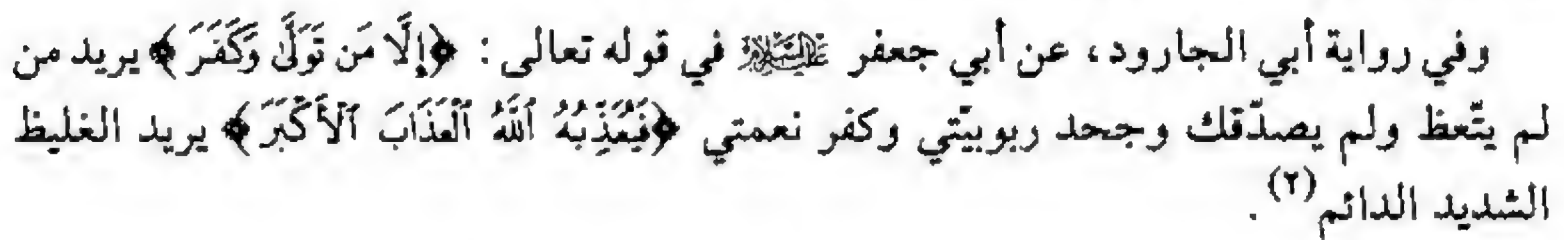 وفي رواية أبي الجارود، عن أبي جعفر عليه السلام في قوله تعالى: ﴿إِلَّا مَن تَوَلَّىٰ وَكَفَرَ﴾ يريد من
لم يتّعظ ولم يصدّقك وجحد ربوبيّتي وكفر نعمتي ﴿فَيُعَذِّبُهُ ٱللَّهُ ٱلْعَذَابَ ٱلْأَكْبَرَ﴾ يريد الغليظ
الشديد الدائم(٢).